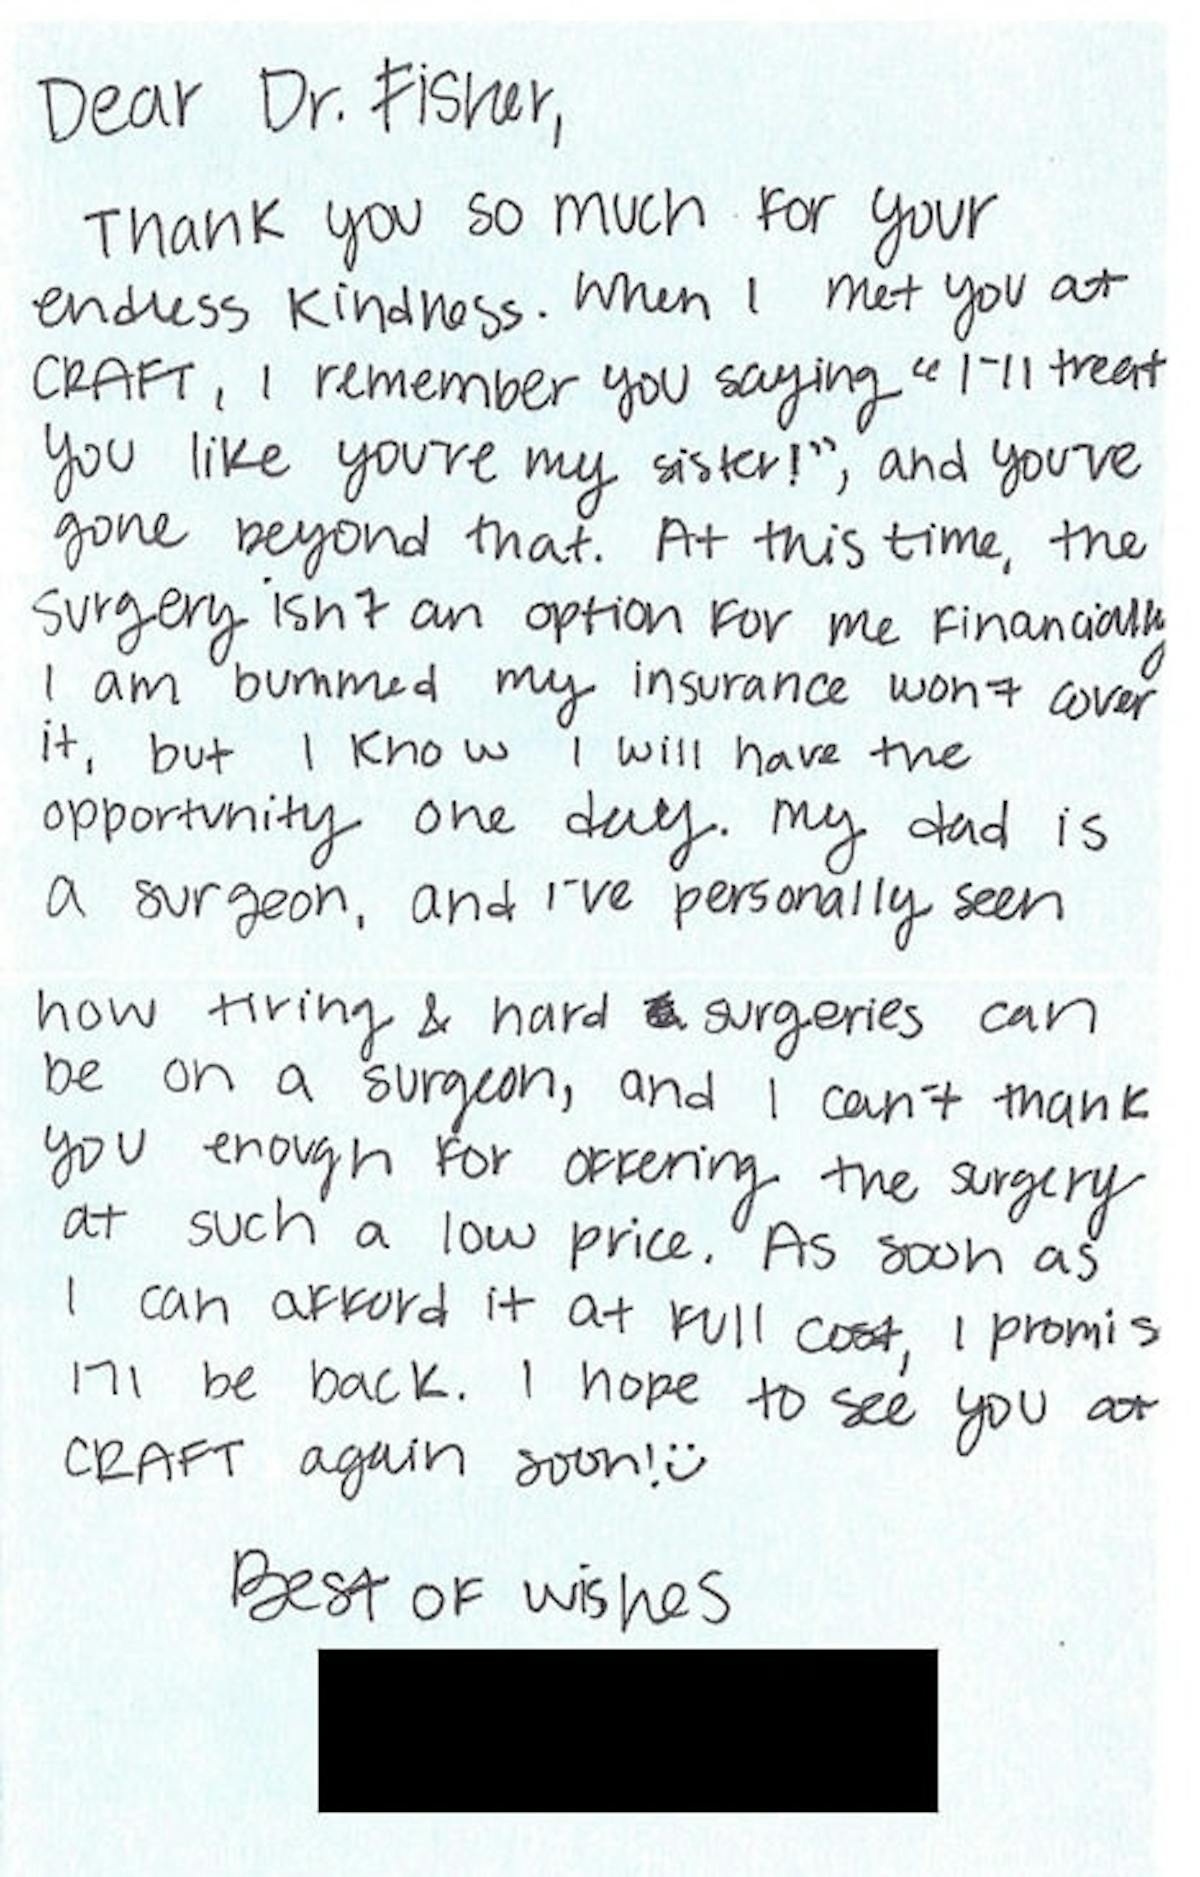 Dear Dr. Fisher,
Thank you so much for your
endless kindness. When I met you at
CRAFT, I remember you saying "I'll treat
you like you're my sister!", and you've
gone beyond that. At this time, the
surgery isn't an option for me financially
I am bummed my insurance won't cover
it, but I know I will have the
opportunity one day. My dad is
a surgeon, and I've personally seen
how tiring & hard surgeries can
be on a surgeon, and I can't thank
you enough for offering the surgery
at such a low price. As soon as
I can afford it at full cost, I promis
I'll be back. I hope to see you at
CRAFT again soon! :)
Best of wishes